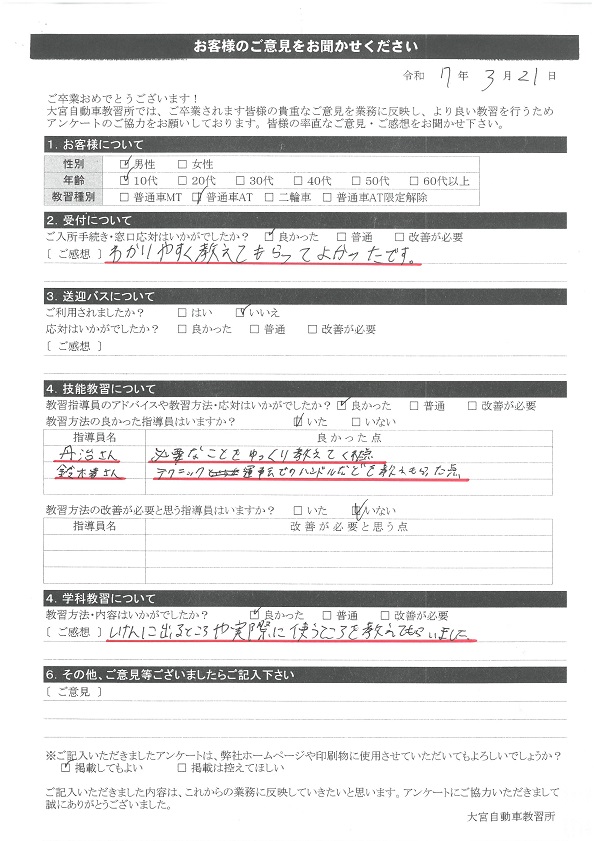 お客様のご意見をお聞かせください
令和 17 年 3 月 21 日
ご卒業おめでとうございます!
大宮自動車教習所では、ご卒業されます皆様の貴重なご意見を業務に反映し、より良い教習を行うため
アンケートのご協力をお願いしております。皆様の率直なご意見・ご感想をお聞かせ下さい。
1. お客様について
性別 ☑男性 □女性
年齢 ☑10代 □20代 □30代 □40代 □50代 □60代以上
教習種別 □普通車MT ☑普通車AT □二輪車 □普通車AT限定解除
2. 受付について
ご入所手続き・窓口応対はいかがでしたか? ☑良かった □普通 □改善が必要
〔 ご感想 〕 わかりやすく教えてもらってよかったです。
3. 送迎バスについて
ご利用されましたか? □はい ☑いいえ
応対はいかがでしたか? □良かった □普通 □改善が必要
〔 ご感想 〕
4. 技能教習について
教習指導員のアドバイスや教習方法・応対はいかがでしたか? ☑良かった □普通 □改善が必要
教習方法の良かった指導員はいますか? ☑いた □いない
指導員名 良かった点
丹治さん 必要なことをゆっくり教えてくれた点
鈴木さん テクニック 運転でのハンドルなどを教えもらった点
教習方法の改善が必要と思う指導員はいますか? □いた ☑いない
指導員名 改善が必要と思う点
4. 学科教習について
教習方法・内容はいかがでしたか? ☑良かった □普通 □改善が必要
〔 ご感想 〕 しけんに出るところや実際に使うところを教えてもらいました。
6. その他、ご意見等ございましたらご記入下さい
〔 ご意見 〕
※ご記入いただきましたアンケートは、弊社ホームページや印刷物に使用させていただいてもよろしいでしょうか?
☑掲載してもよい □掲載は控えてほしい
ご記入いただきました内容は、これからの業務に反映していきたいと思います。アンケートにご協力いただきまして
誠にありがとうございました。
大宮自動車教習所